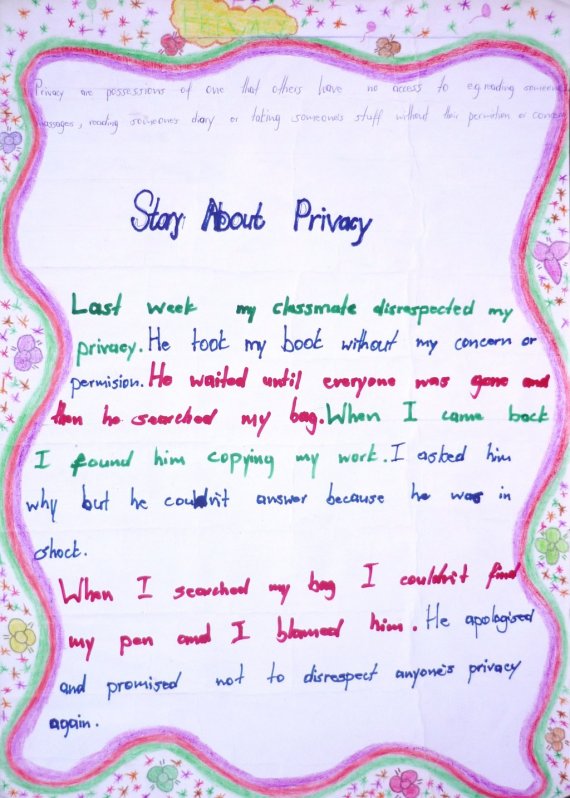 Privacy are possessions of one that others have no access to eg.reading someones
massages, reading someone's diary or taking someone's stuff without their permition or concern
Story About Privacy
Last week my classmate disrespected my
privacy. He took my book without my concern or
permision. He waited until everyone was gone and
then he searched my bag. When I came back
I found him copying my work. I asked him
why but he couldn't answer because he was in
shock.
When I searched my bag I couldn't find
my pen and I blamed him. He apologised
and promised not to disrespect anyone's privacy
again.